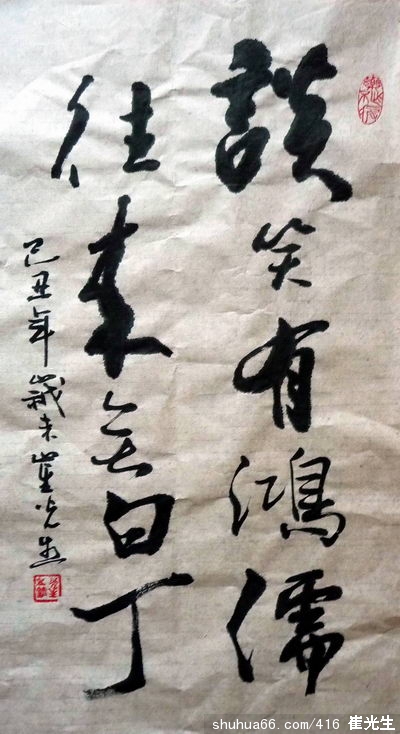 談笑有鴻儒
往来無白丁
己丑年歲末崔光生
shuhua66.com/416 崔光生